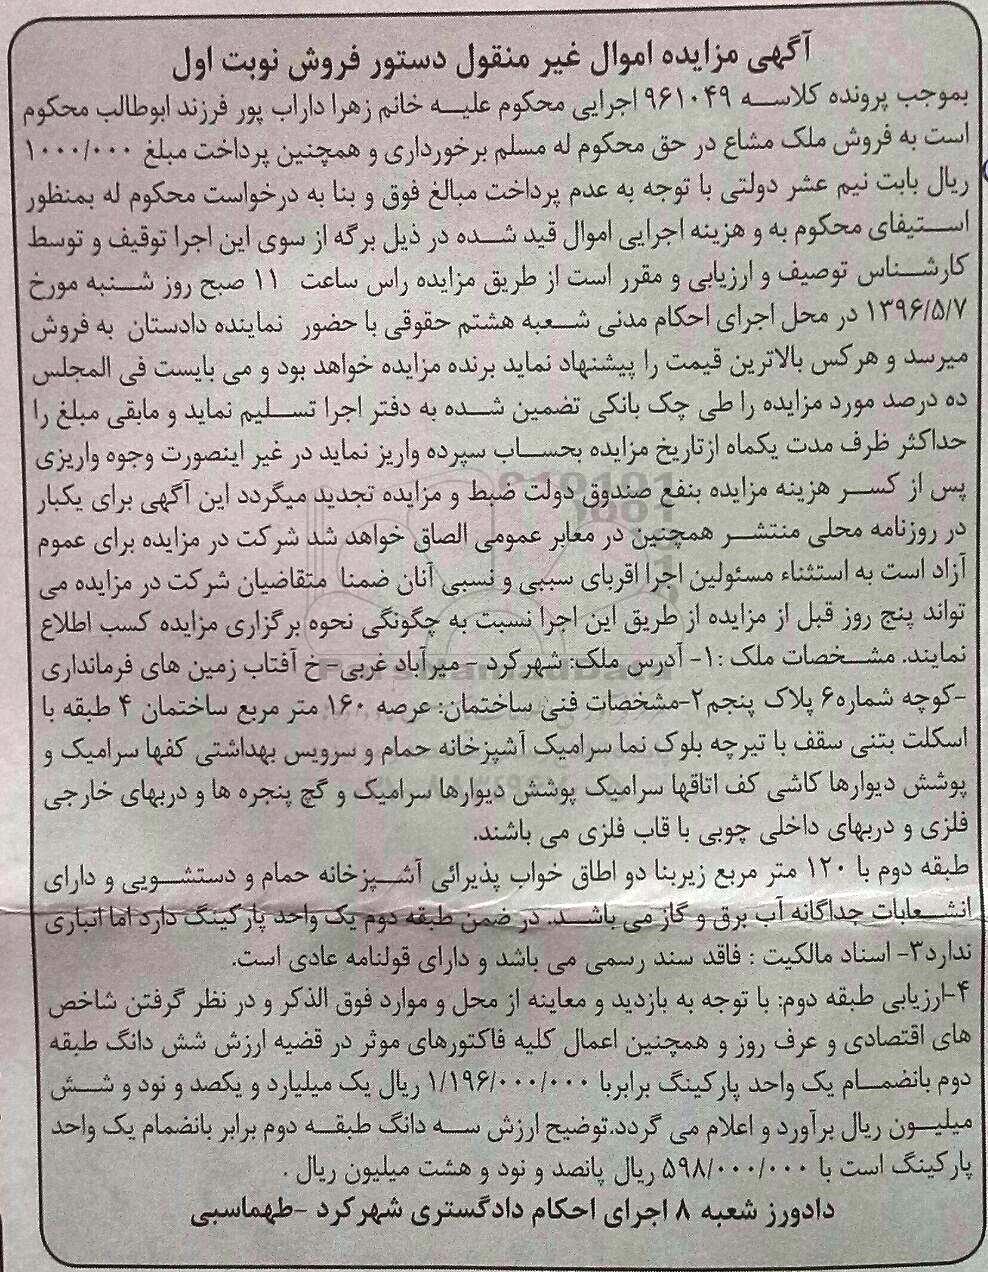 آگهی مزایده اموال غیر منقول دستور فروش نوبت اول
بموجب پرونده کلاسه ۹۶۱۰۴۹ اجرایی محکوم علیه خانم زهرا داراب پور فرزند ابوطالب محکوم
است به فروش ملک مشاع در حق محکوم له مسلم برخورداری و همچنین پرداخت مبلغ ۱۰۰۰/۰۰۰
ریال بابت نیم عشر دولتی با توجه به عدم پرداخت مبالغ فوق و بنا به درخواست محکوم له بمنظور
استیفای محکوم به و هزینه اجرایی اموال قید شده در ذیل برگه از سوی این اجرا توقیف و توسط
کارشناس توصیف و ارزیابی و مقرر است از طریق مزایده راس ساعت ۱۱ صبح روز شنبه مورخ
۱۳۹۶/۵/۷ در محل اجرای احکام مدنی شعبه هشتم حقوقی با حضور نماینده دادستان به فروش
میرسد و هرکس بالاترین قیمت را پیشنهاد نماید برنده مزایده خواهد بود و می بایست فی المجلس
ده درصد مورد مزایده را طی چک بانکی تضمین شده به دفتر اجرا تسلیم نماید و مابقی مبلغ را
حداکثر ظرف مدت یکماه ازتاریخ مزایده بحساب سپرده واریز نماید در غیر اینصورت وجوه واریزی
پس از کسر هزینه مزایده بنفع صندوق دولت ضبط و مزایده تجدید میگردد این آگهی برای یکبار
در روزنامه محلی منتشر همچنین در معابر عمومی الصاق خواهد شد شرکت در مزایده برای عموم
آزاد است به استثناء مسئولین اجرا اقربای سببی و نسبی آنان ضمنا متقاضیان شرکت در مزایده می
تواند پنج روز قبل از مزایده از طریق این اجرا نسبت به چگونگی نحوه برگزاری مزایده کسب اطلاع
نمایند. مشخصات ملک :۱- آدرس ملک: شهرکرد - میرآباد غربی- خ آفتاب زمین های فرمانداری
-کوچه شماره۶ پلاک پنجم۲-مشخصات فنی ساختمان: عرصه ۱۶۰ متر مربع ساختمان ۴ طبقه با
اسکلت بتنی سقف با تیرچه بلوک نما سرامیک آشپزخانه حمام و سرویس بهداشتی کفها سرامیک و
پوشش دیوارها کاشی کف اتاقها سرامیک پوشش دیوارها سرامیک و گچ پنجره ها و دربهای خارجی
فلزی و دربهای داخلی چوبی با قاب فلزی می باشند.
طبقه دوم با ۱۲۰ متر مربع زیربنا دو اطاق خواب پذیرائی آشپزخانه حمام و دستشویی و دارای
انشعابات جداگانه آب برق و گاز می باشد. در ضمن طبقه دوم یک واحد پارکینگ دارد اما انباری
ندارد۳- اسناد مالکیت : فاقد سند رسمی می باشد و دارای قولنامه عادی است.
۴-ارزیابی طبقه دوم: با توجه به بازدید و معاینه از محل و موارد فوق الذکر و در نظر گرفتن شاخص
های اقتصادی و عرف روز و همچنین اعمال کلیه فاکتورهای موثر در قضیه ارزش شش دانگ طبقه
دوم بانضمام یک واحد پارکینگ برابربا ۱/۱۹۶/۰۰۰/۰۰۰ ریال یک میلیارد و یکصد و نود و شش
میلیون ریال برآورد و اعلام می گردد.توضیح ارزش سه دانگ طبقه دوم برابر بانضمام یک واحد
پارکینگ است با ۵۹۸/۰۰۰/۰۰۰ ریال پانصد و نود و هشت میلیون ریال .
دادورز شعبه ۸ اجرای احکام دادگستری شهرکرد -طهماسبی